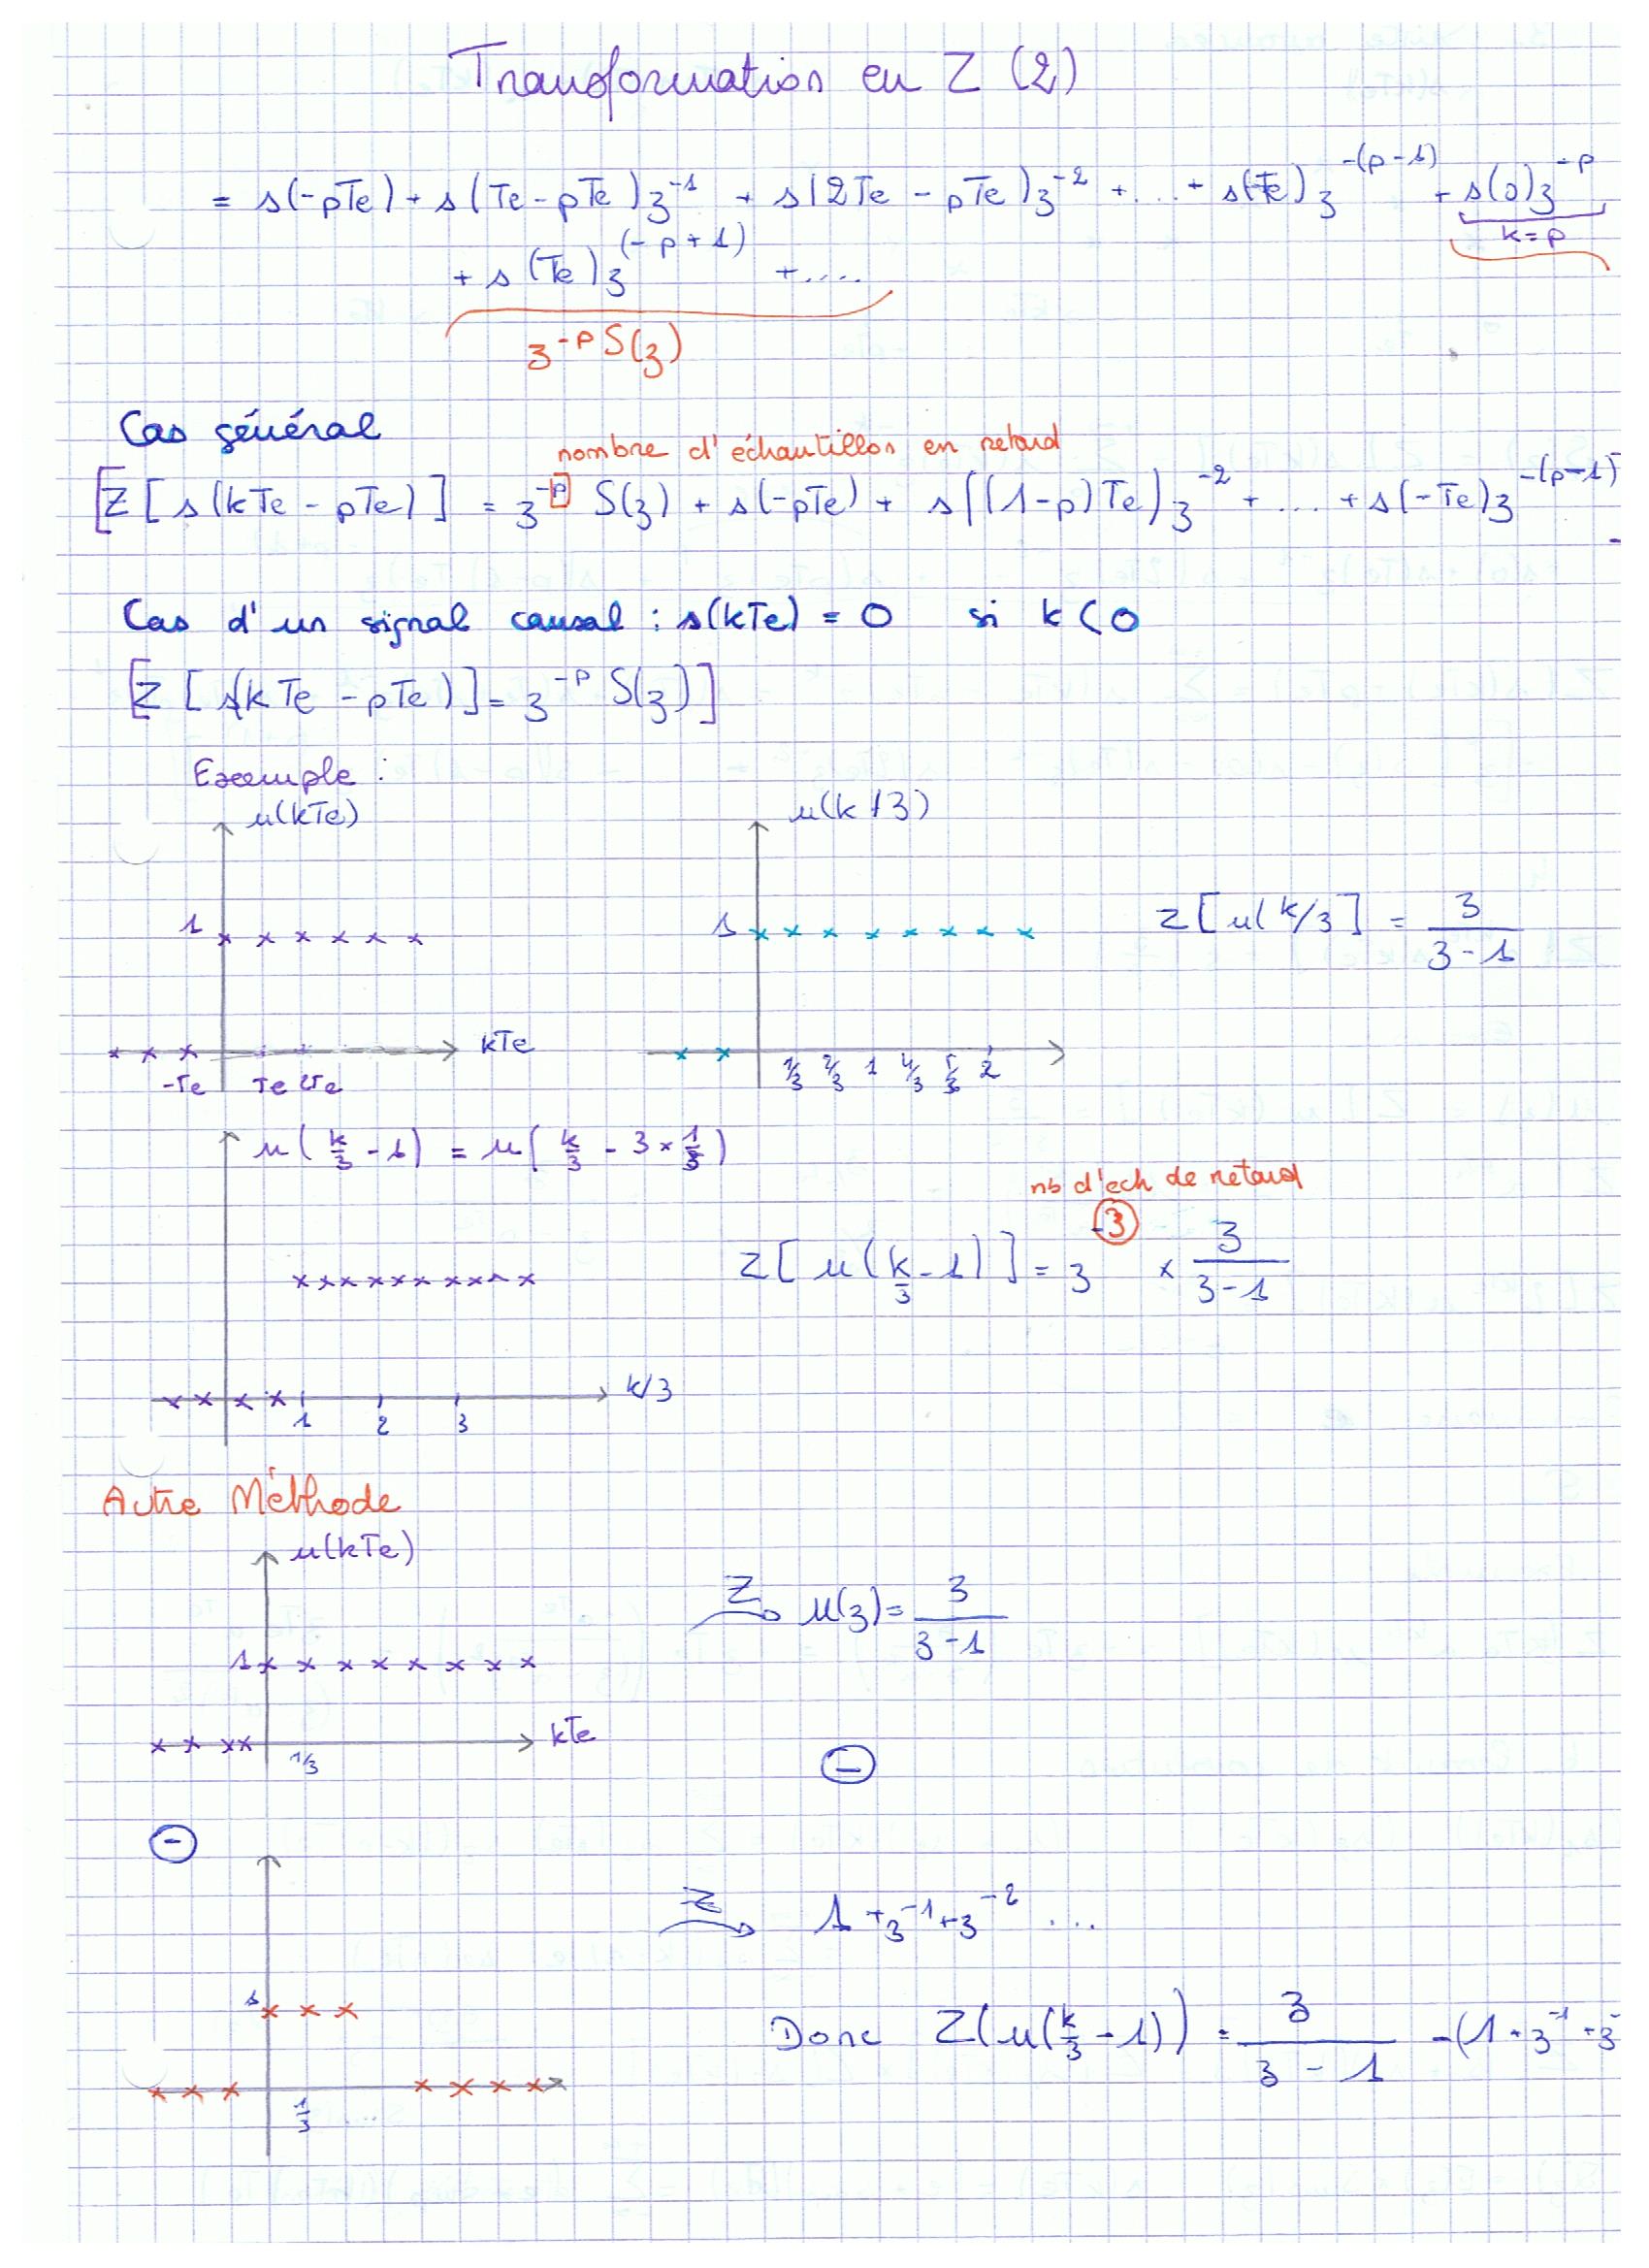 Transformation en Z (2)
= s(-pTe) + s(Te - pTe)z⁻¹ + s(2Te - pTe)z⁻² + ... + s(-Te)z^-(p-1) + s(0)z^-p
k=p
+ s(Te)z^(-p+1) + ....
z^-p S(z)
Cas général
nombre d'échantillon en retard
[Z[s(kTe - pTe)] = z^-p S(z) + s(-pTe) + s((1-p)Te)z⁻² + ... + s(-Te)z^-(p-1)
Cas d'un signal causal : s(kTe) = 0 si k < 0
[Z[s(kTe - pTe)] = z^-p S(z)]
Exemple :
u(kTe) u(k/3)
1 1 Z[u(k/3] = z/(z-1)
kTe
-Te Te 2Te 1/3 2/3 1 4/3 5/3 2
u(k/3 - 1) = u(k/3 - 3 × 1/3)
nb d'ech de retard
Z[u(k/3 - 1)] = z^-3 × z/(z-1)
k/3
1 2 3
Autre Méthode
u(kTe)
Z u(z) = z/(z-1)
1
kTe
1/3
-
-
Z 1 + z⁻¹ + z⁻² ...
1
Donc Z(u(k/3 - 1)) = z/(z - 1) - (1 + z⁻¹ + z⁻
1/3